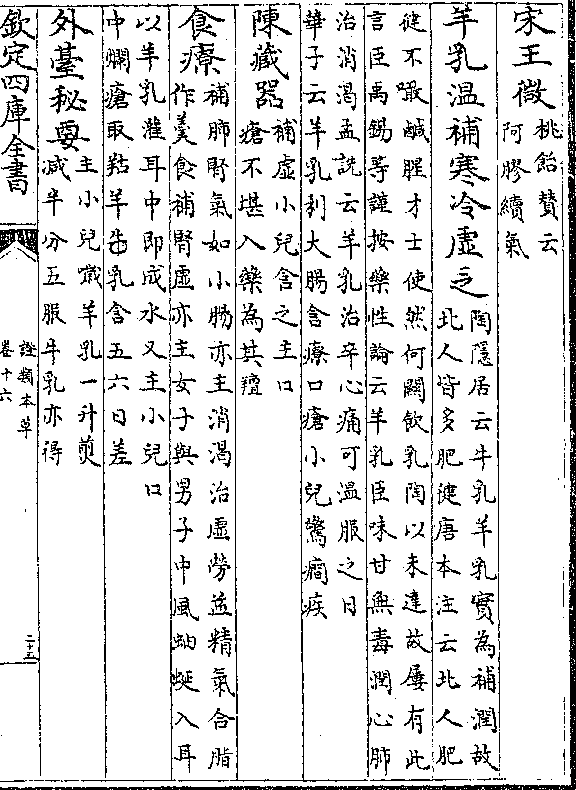 宋王微桃飴贊云
阿膠續氣
羊乳溫補寒冷虛乏陶隱居云牛乳羊乳實為補潤故
北人皆多肥健唐本注云北人肥
健不噉鹹腥才士使然何關飲乳陶以未達故屢有此
言臣禹錫等謹按藥性論云羊乳臣味甘無毒潤心肺
治消渴孟詵云羊乳治卒心痛可溫服之日
華子云羊乳利大腸含療口瘡小兒驚癇疾
陳藏器補虛小兒含之主口
瘡不堪入藥為其羶
食療補肺腎氣如小腸亦主消渴治虛勞益精氣合脂
作羹食補腎虛亦主女子與男子中風蚰蜒入耳
以羊乳灌耳中即成水又主小兒口
中爛瘡取羖羊生乳含五六日差
外臺秘要主小兒噦羊乳一升煎
减半分五服牛乳亦得
欽定四庫全書
證類本草
卷十六
二十五